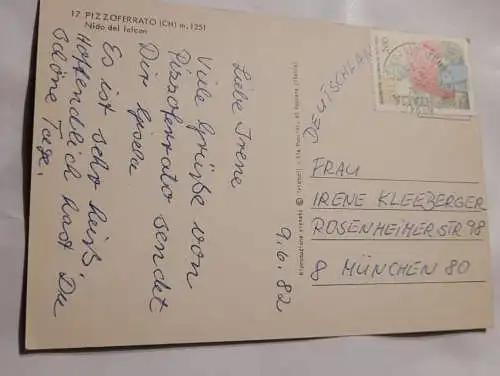 17 PIZZOFERRATO (CH) m. 1251
Nido dei falcon
Liebe Irene
Viele Grüße von
Pizzoferrato sendet
Dir
Es ist sehr heiß.
Hoffendlich hast Du
schöne Tage.
9.6.82
DEUTSCHLAND
FRAU
IRENE KLEEBERGER
ROSENHEIMERSTR 98
8 MÜNCHEN 80